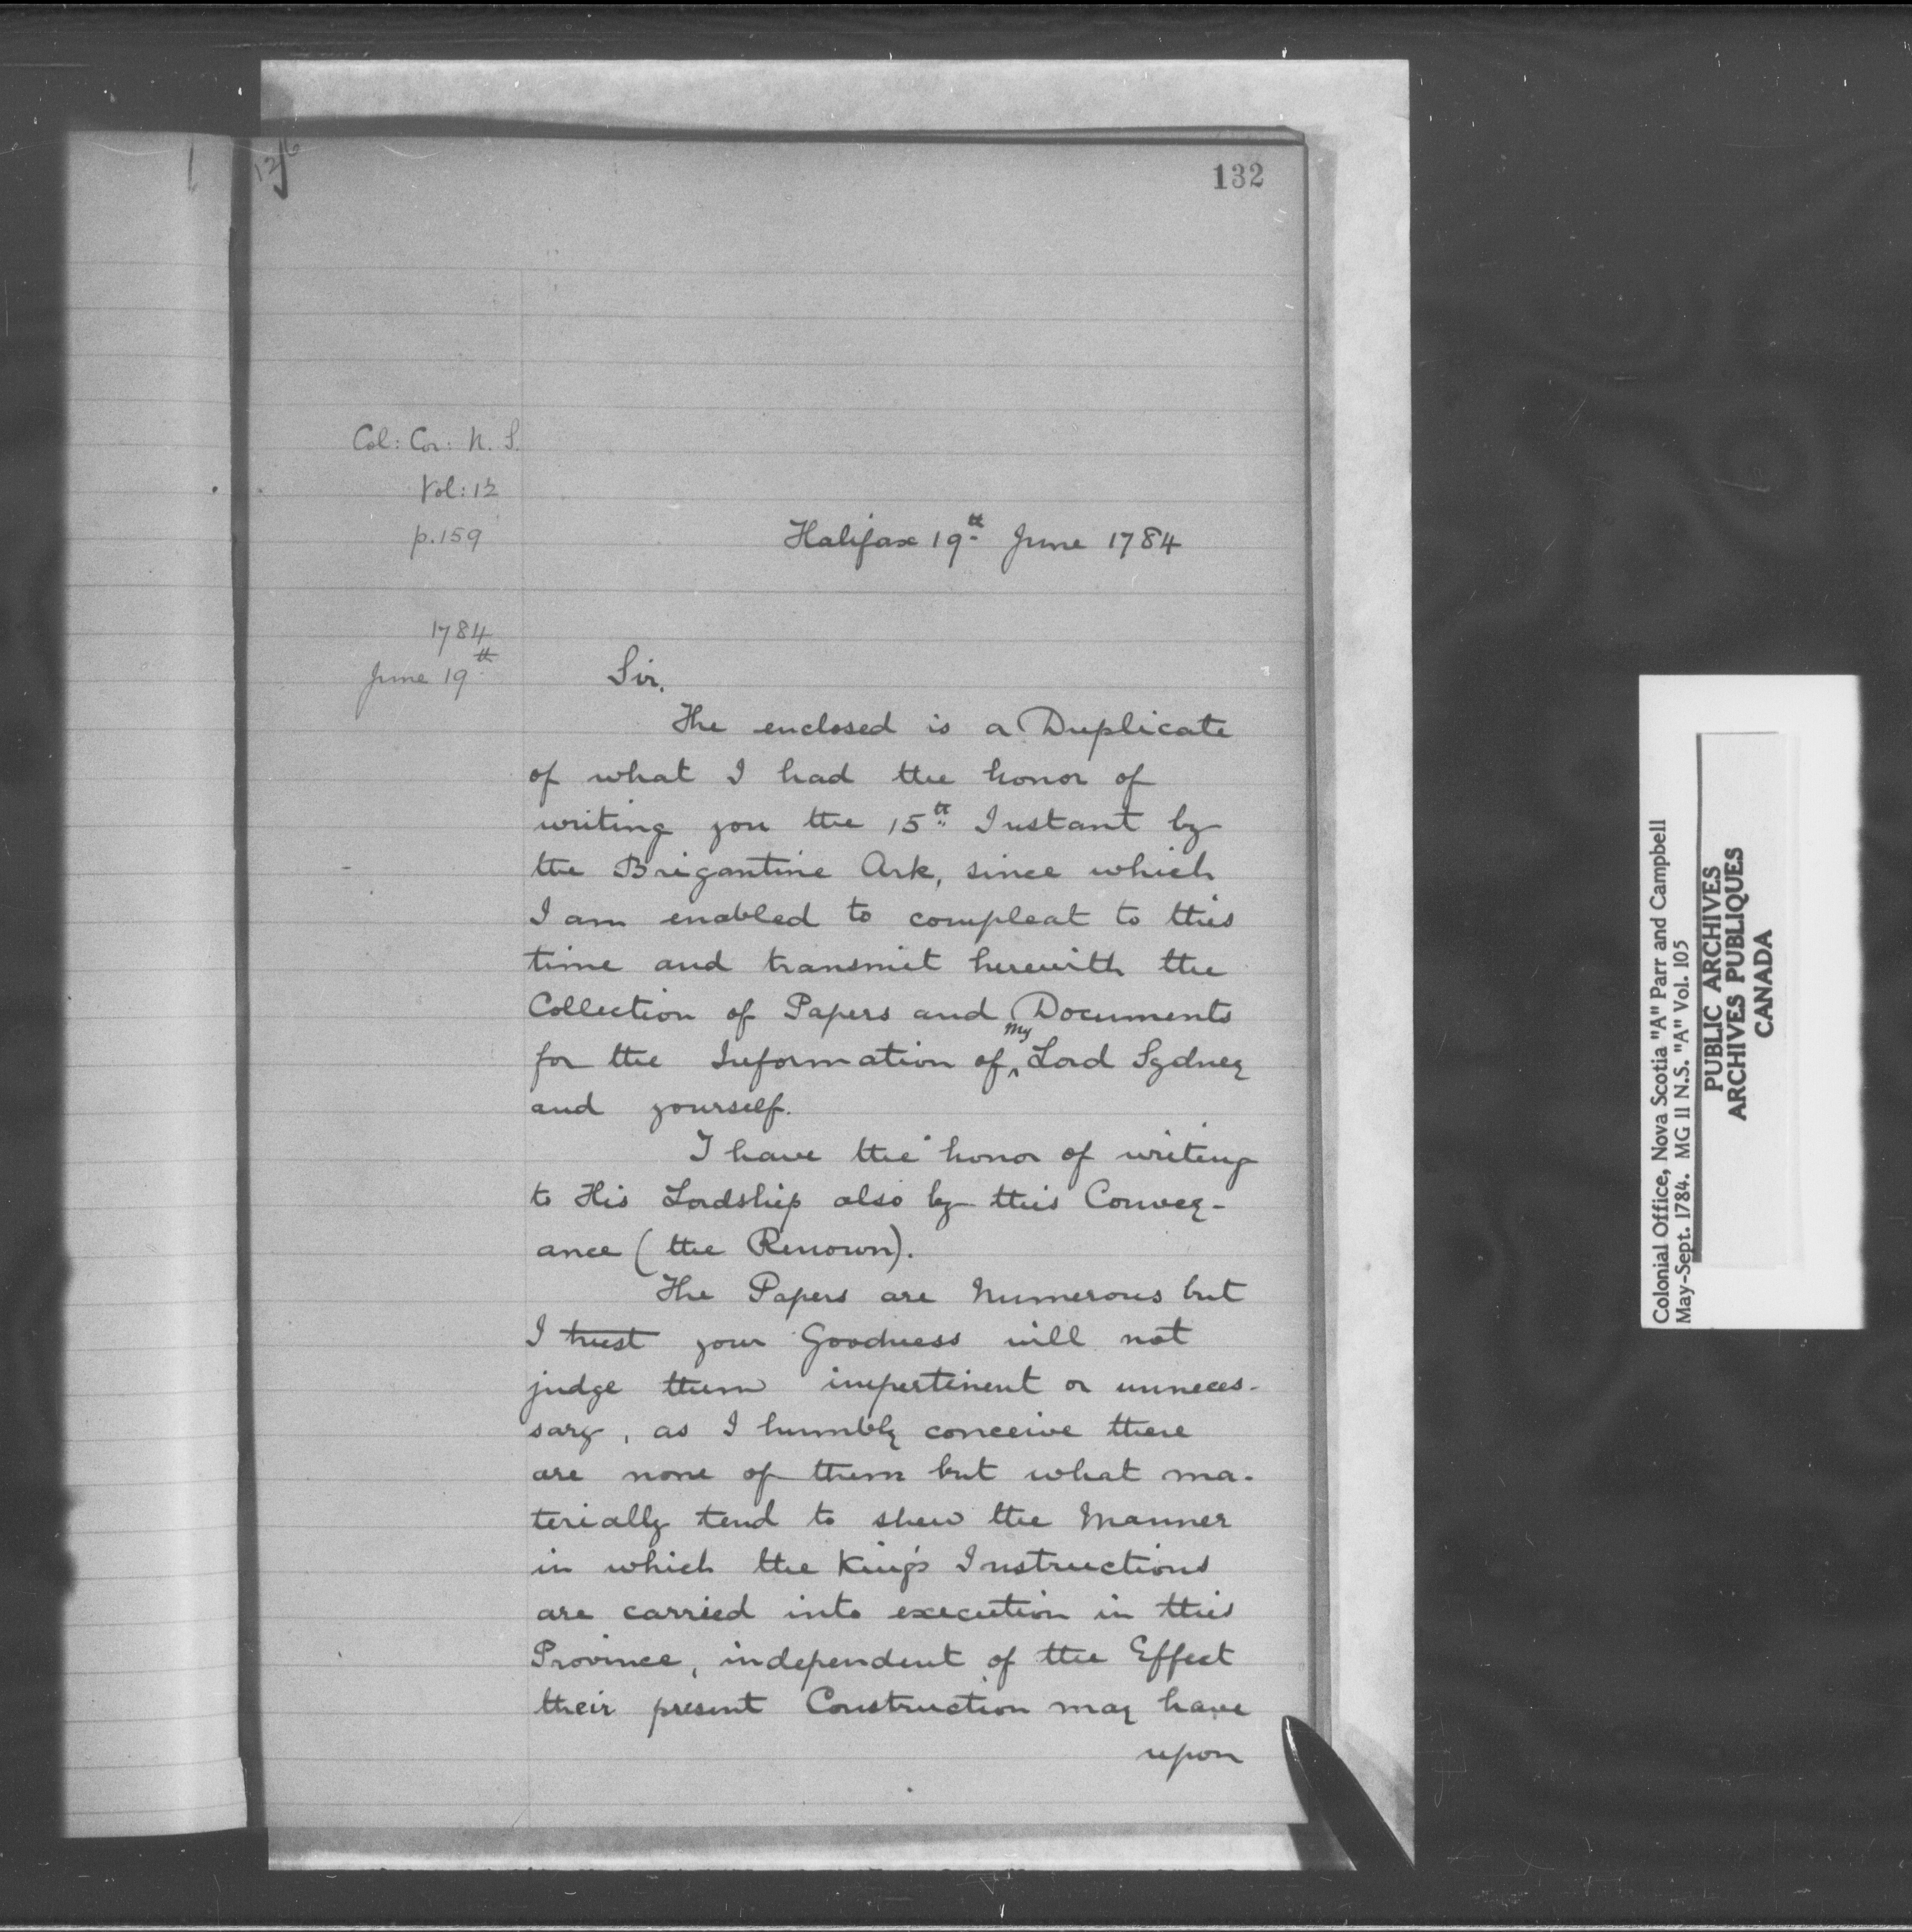 132
Col: Cor: N. S.
Vol: 12
p. 159
Halifax 19th June 1784
1784
June 19th
Sir,
The enclosed is a Duplicate
of what I had the honor of
writing you the 15th Instant by
the Brigantine Ark, since which
I am enabled to compleat to this
time and transmit herewith the
Collection of Papers and Documents
for the Information of my Lord Sydney
and yourself.
I have the honor of writing
to His Lordship also by this Convey-
ance (the Renown).
The Papers are Numerous but
I trust your Goodness will not
judge them impertinent or unneces-
sary, as I humbly conceive there
are none of them but what ma-
terially tend to shew the Manner
in which the King's Instructions
are carried into execution in this
Province, independent of the Effect
their present Construction may have
upon
Colonial Office, Nova Scotia "A" Parr and Campbell
May-Sept. 1784. MG 11 N.S. "A" Vol. 105
PUBLIC ARCHIVES
ARCHIVES PUBLIQUES
CANADA